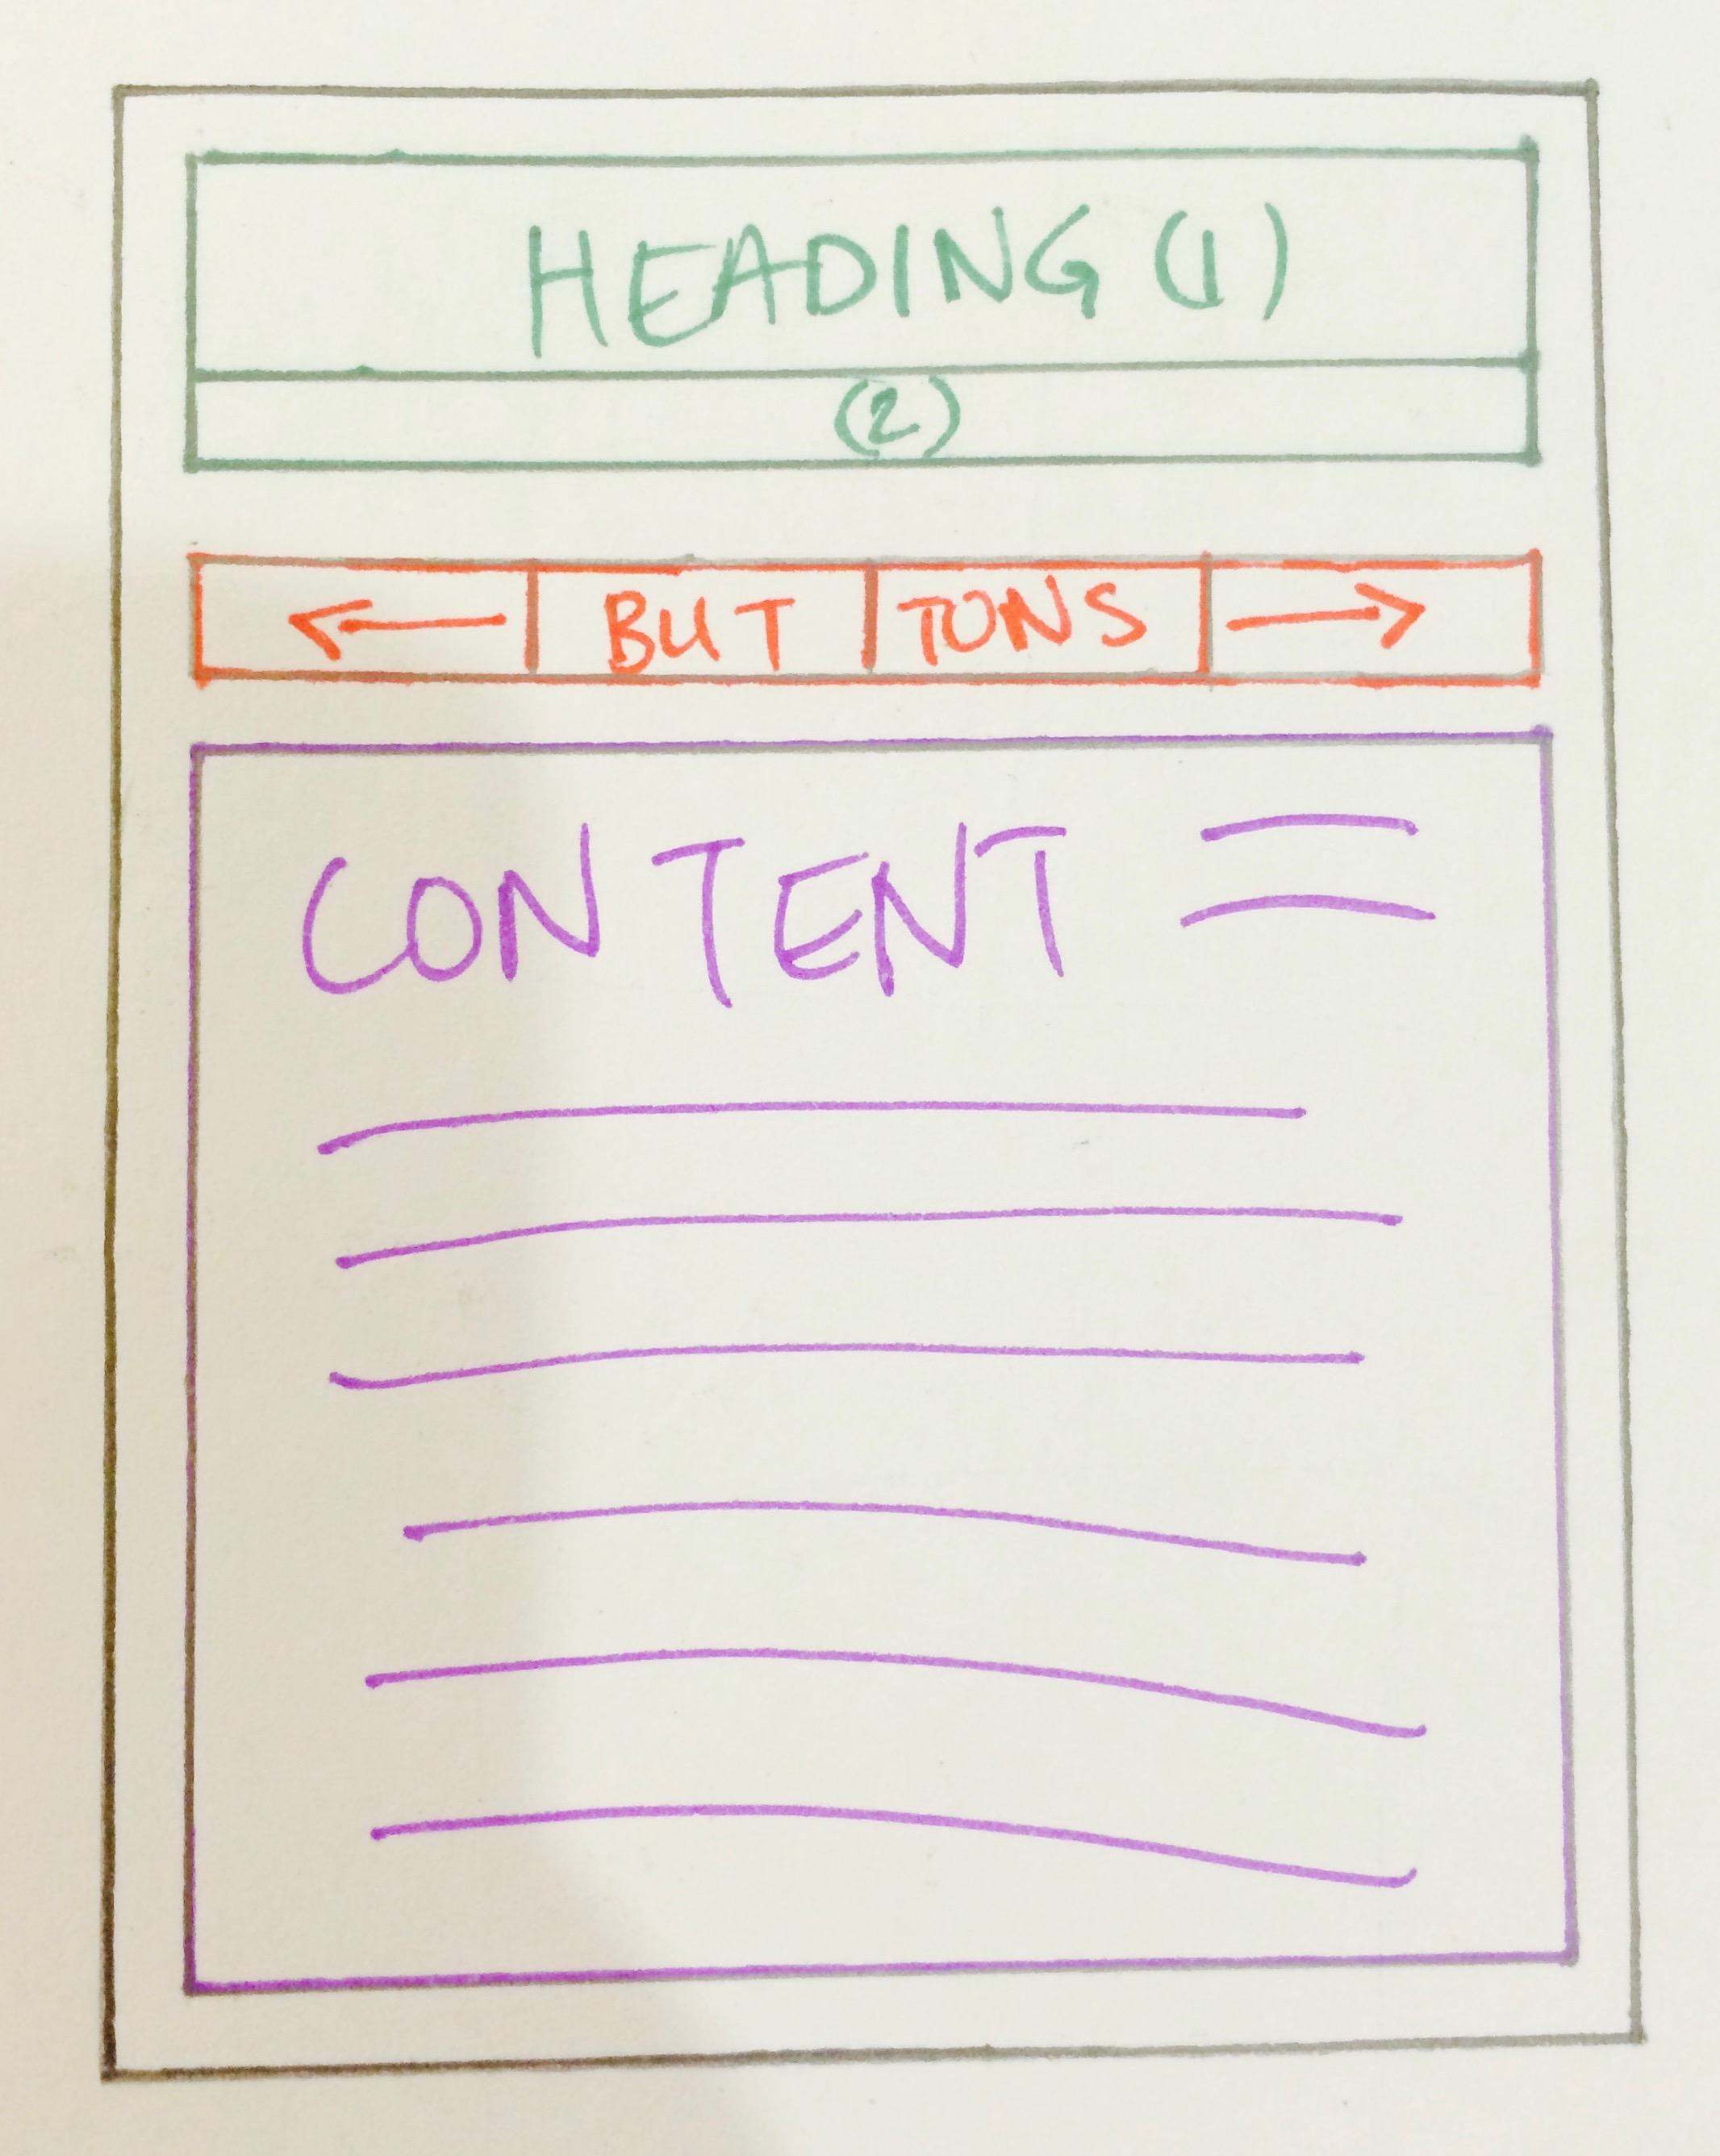 HEADING (1)
(2)
← BUT TONS →
CONTENT